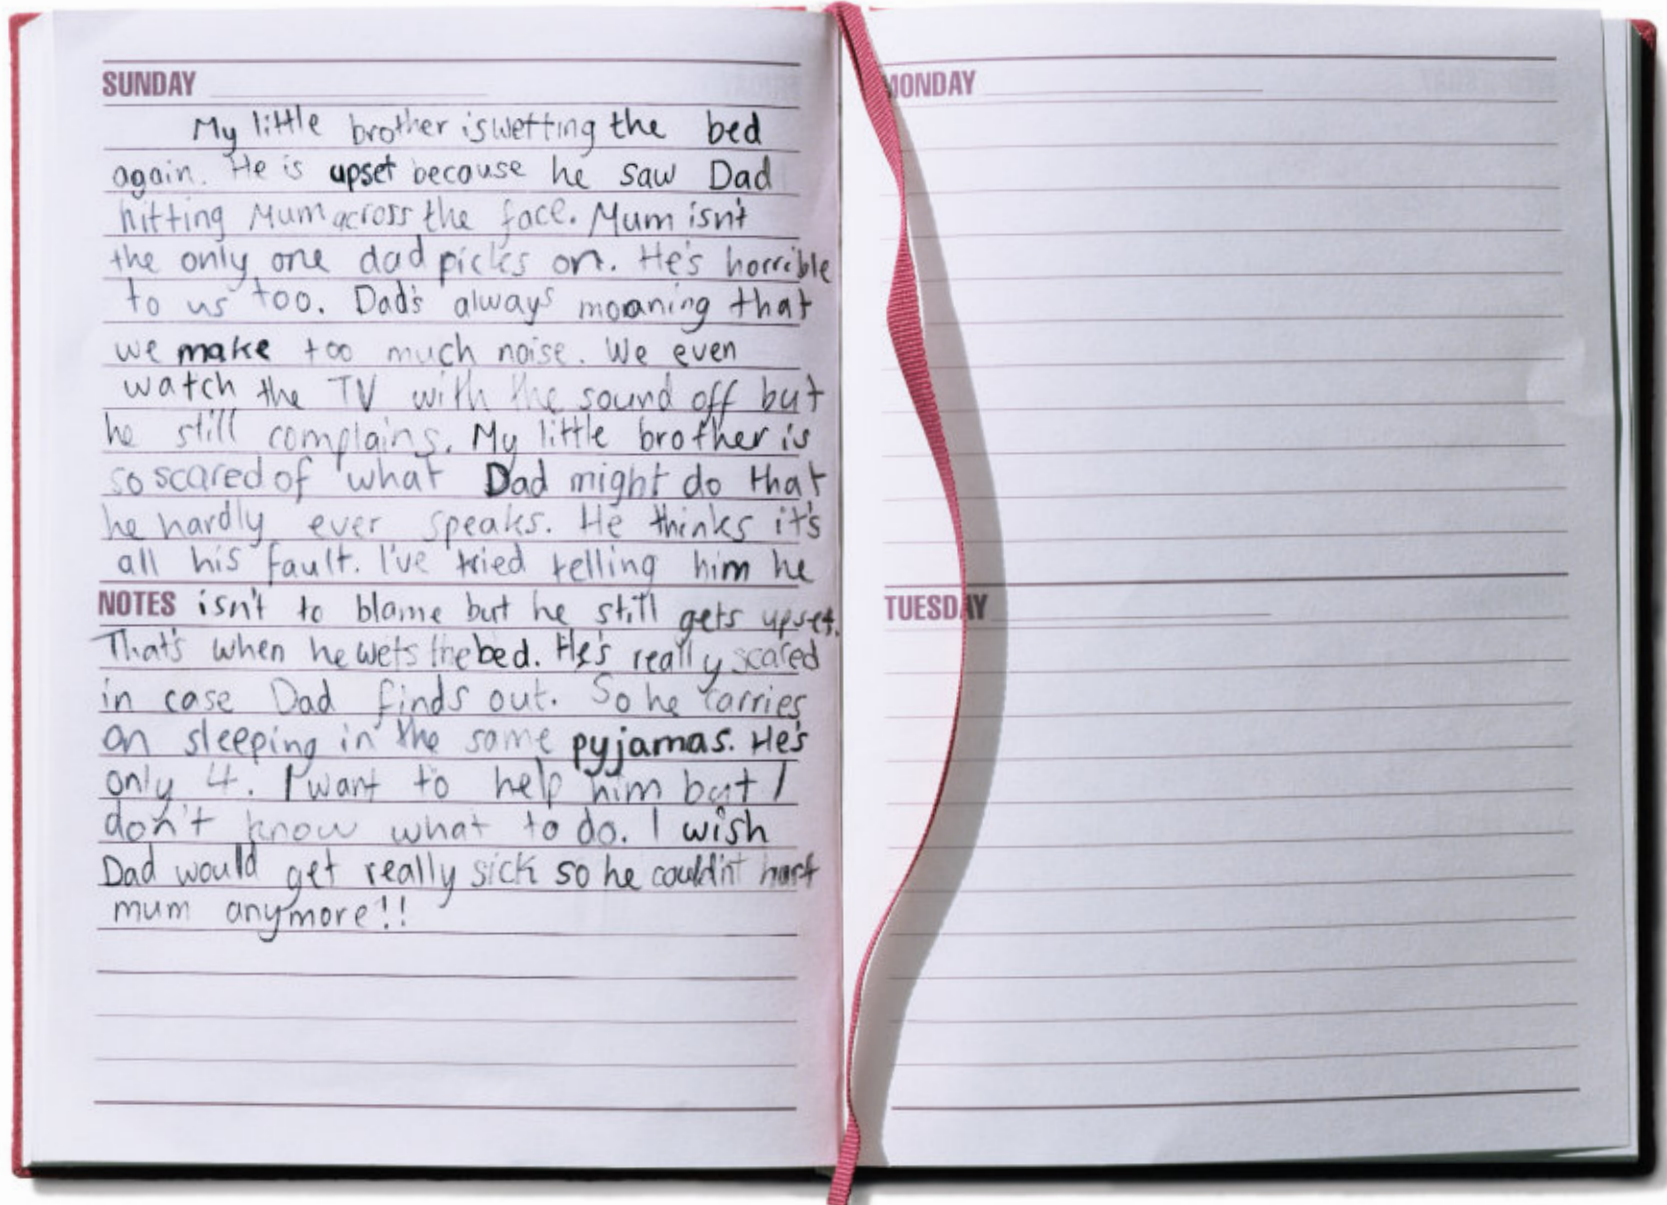 SUNDAY
My little brother is wetting the bed
again. He is upset because he saw Dad
hitting Mum across the face. Mum isn't
the only one dad picks on. He's horrible
to us too. Dad's always moaning that
we make too much noise. We even
watch the TV with the sound off but
he still complains. My little brother is
so scared of what Dad might do that
he hardly ever speaks. He thinks it's
all his fault. I've tried telling him he
NOTES isn't to blame but he still gets upset.
That's when he wets the bed. He's really scared
in case Dad finds out. So he carries
on sleeping in the same pyjamas. He's
only 4. I want to help him but I
don't know what to do. I wish
Dad would get really sick so he couldn't hurt
mum anymore!!
MONDAY
TUESDAY